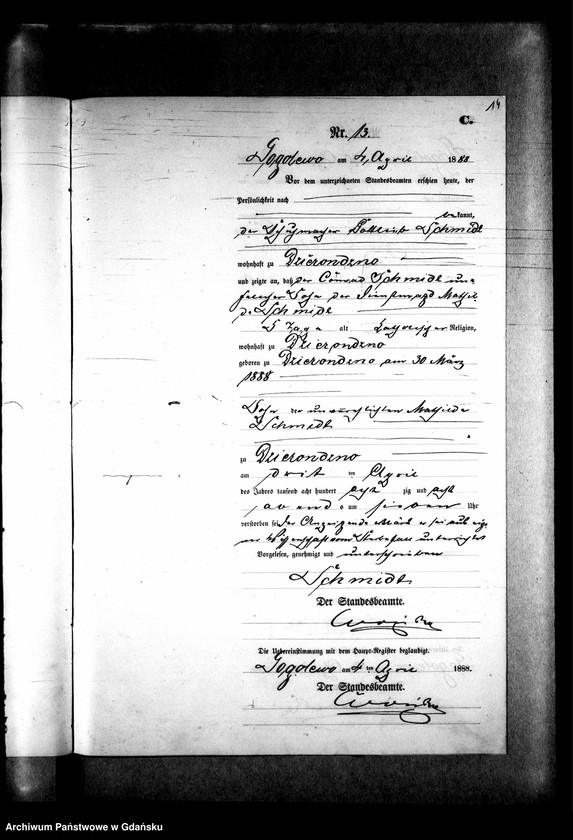 14
C.
Nr. 13.
Gogolewo am 4. April 1888
Vor dem unterzeichneten Standesbeamten erschien heute, der
Persönlichkeit nach
bekannt,
der Schuhmacher Gottlieb Schmidt
wohnhaft zu Dzierondzno
und zeigte an, daß der Conrad Schmidt un-
Sohn der Dienstmagd Mathil
de Schmidt
5 Tage alt Religion,
wohnhaft zu Dzierondzno
geboren zu Dzierondzno am 30 März
1888
Sohn der unverehelichten Mathilde
Schmidt
zu Dzierondzno
am April
des Jahres tausend acht hundert acht zig und acht
um sieben Uhr
verstorben sei der Anzeigende er sei aus eige
ner Wissenschaft vom Sterbefall unterrichtet
Vorgelesen, genehmigt und unterschrieben
Schmidt
Der Standesbeamte.
Die Uebereinstimmung mit dem Haupt-Register beglaubigt.
Gogolewo am 4 ten April 1888.
Der Standesbeamte.
Archiwum Państwowe w Gdańsku